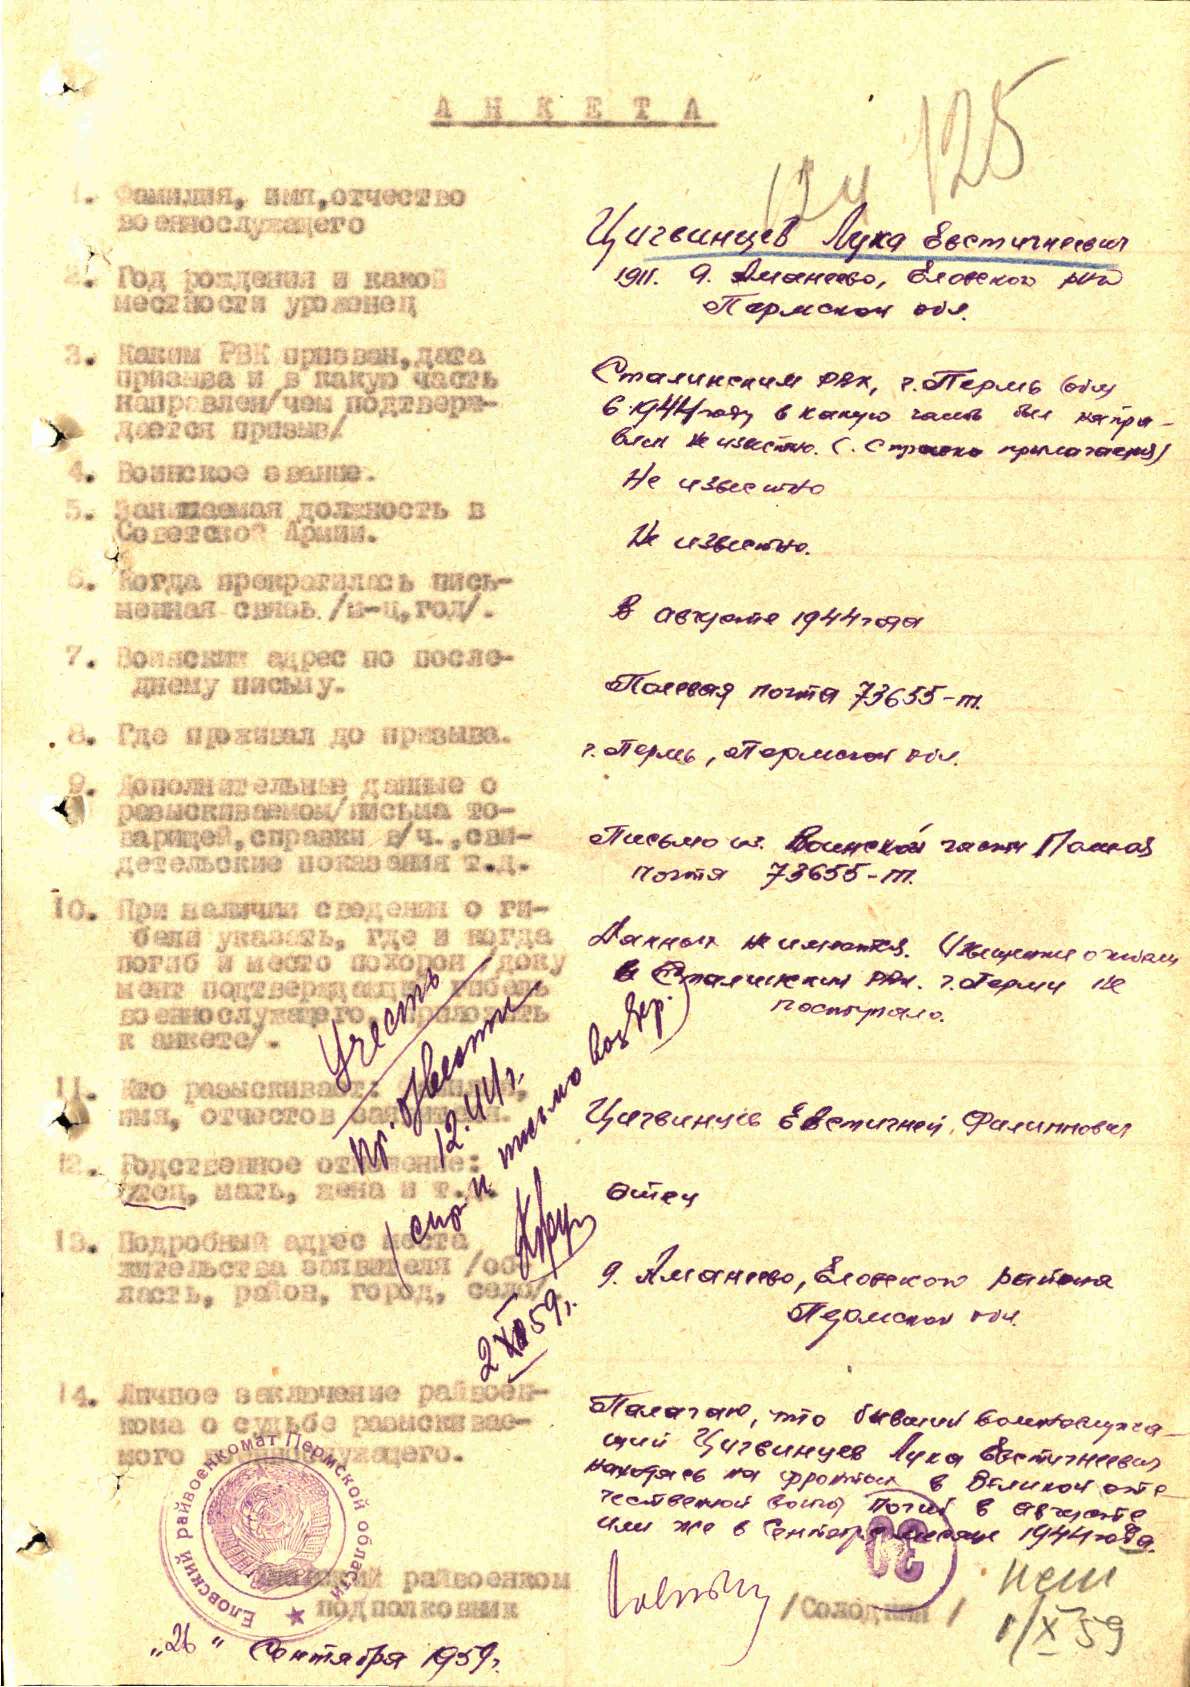 А Н К Е Т А
125
124
1. Фамилия, имя, отчество
военнослужащего
Цигвинцев Лука Евстигнеевич
2. Год рождения и какой
местности уроженец
1911. д. Аманеево, Еловского р-на
Пермской обл.
3. Каким РВК призван, дата
призыва и в какую часть
направлен/чем подтвер-
дается призыв/
Сталинским РВК, г. Пермь
в 1944 году в какую часть был напра-
влен не известно. (Справка прилагается)
4. Воинское звание.
Не известно
5. Занимаемая должность в
Советской Армии.
Не известно.
6. Когда прекратилась пись-
менная связь /м-ц, год/.
В августе 1944 года
7. Воинский адрес по после-
днему письму.
Полевая почта 73655-т.
8. Где проживал до призыва.
г. Пермь, Пермской обл.
9. Дополнительные данные о
разыскиваемом/письма то-
варищей, справки в/ч., сви-
детельские показания т.д.
Письмо из Воинской части Полевая
почта 73655-т.
10. При наличии сведения о ги-
бели указать, где и когда
погиб и место похорон /доку
мент подтверждающий гибель
военнослужащего, приложить
к анкете/.
Данных не имеется. Извещение о гибели
в Сталинский РВК г. Перми не
поступало.
11. Кто разыскивает:
имя, отчество заявителя.
Цигвинцев Евстигней Филиппович
12. Родственное отношение:
отец, мать, жена и т.д.
Отец
13. Подробный адрес места
жительства заявителя /об-
ласть, район, город, село/.
д. Аманеево, Еловского района
Пермской обл.
Учесть
пр. б/вести
12.44 г.
и письмо
2 XII 59 г.
14. Личное заключение райвоен-
кома о судьбе разыскивае-
мого военнослужащего.
Полагаю, что бывший военнослужа-
щий Цигвинцев Лука Евстигнеевич
находясь на фронтах в Великой оте-
чественной войны погиб в августе
или же в сентябре месяце 1944 года.
Еловский райвоенкомат Пермской области
30
Еловский райвоенком
подполковник
/Солодкий/
1/X 59
„26" Сентября 1959 г.